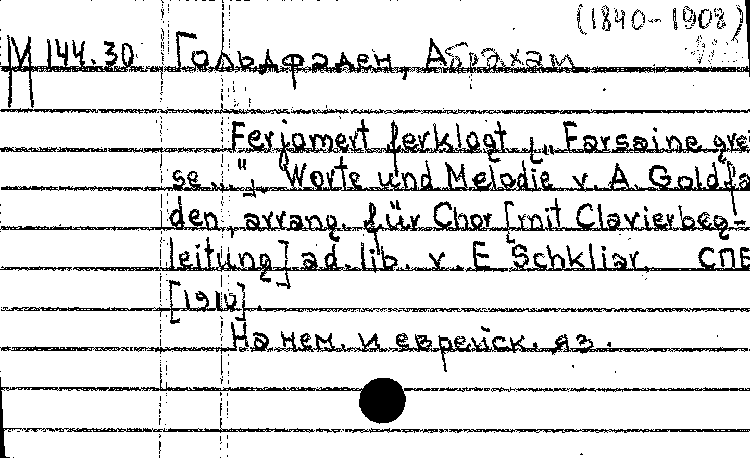 (1840-1908)
М 144.30 Гольдфаден, Абрахам
Ferjomert ferklogt. [„Farsaine grei
se..."] Worte und Melodie v. A. Goldfa
den, arrang. für Chor [mit Clavierbeg-
leitung] ad. lib. v. E Schkliar. СПБ
[1910].
На нем. и еврейск. яз.